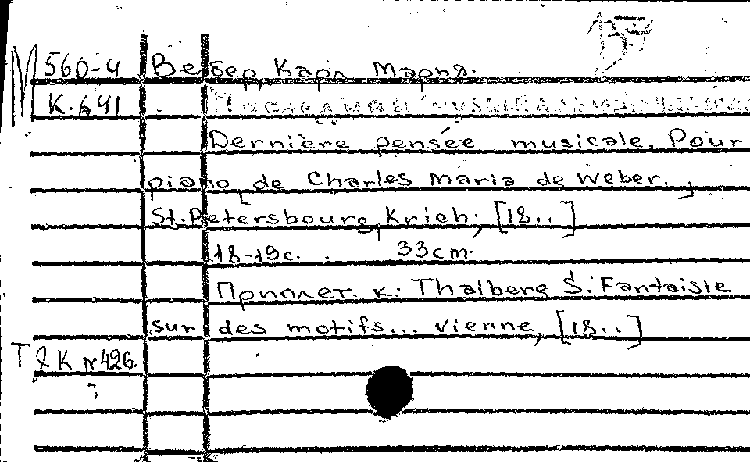 157
М 560-4 Вебер, Карл Мария.
К.641 Последняя музыкальная
Dernière pensée musicale. Pour
piano de Charles Maria de Weber.
St.Petersbourg, Krich, [18..]
18-19с. 33см.
Приплет. к: Thalberg S. Fantaisie
sur des motifs... Vienne, [18..]
ТЯК №426.